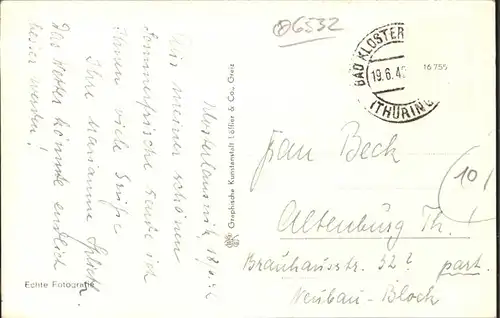 Aus meiner schönen
Sommerfrische sende ich
Ihnen viele Grüße
Ihre Marianne
Das Wetter könnte endlich
besser werden!
Echte Fotografie
Graphische Kunstanstalt Löffler & Co., Greiz
06532
BAD KLOSTER
19.6.4
(THÜRING
16755
Frau Beck
Altenburg Th.
Brauhausstr. 32? part.
Neubau-Block
10